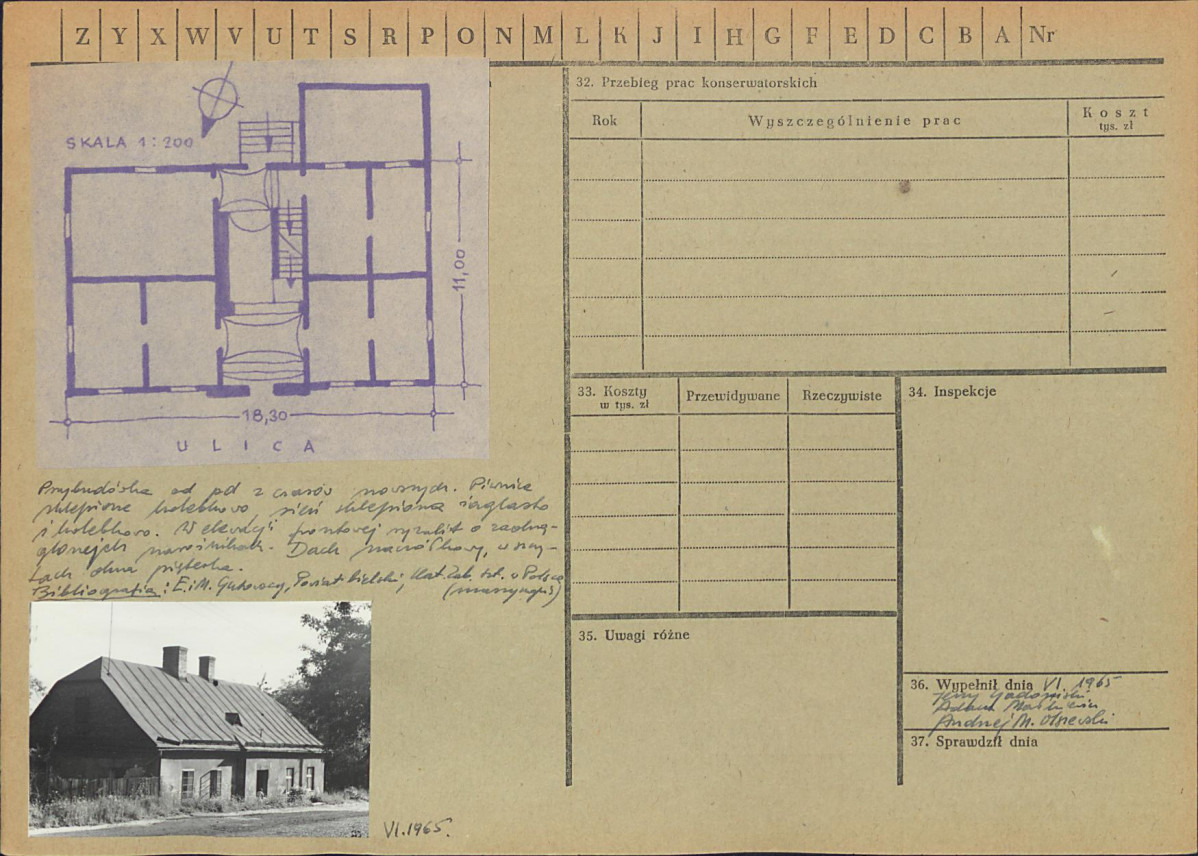 Z Y X W V U T S R P O N M L K J I H G F E D C B A Nr
SKALA 1:200
11,00
18,30
ULICA
Przybudówka od pd z czasów nowszych. Piwnice
sklepione kolebkowo, sień sklepiona żaglasto
i kolebkowo. W elewacji frontowej ryzalit o zaokrą-
glonych narożnikach. Dach naczółkowy, w szczy-
tach dwa pięterka.
Bibliografia: E. i M. Gutowscy, Powiat bielski, Kat. Zab. Szt. w Polsce
(maszynopis)
VI.1965.
32. Przebieg prac konserwatorskich
Rok
Wyszczególnienie prac
Koszt
tys. zł
33. Koszty
w tys. zł
Przewidywane
Rzeczywiste
34. Inspekcje
35. Uwagi różne
36. Wypełnił dnia VI. 1965
Jerzy Gadomski
Adam
Andrzej M. Olszewski
37. Sprawdził dnia